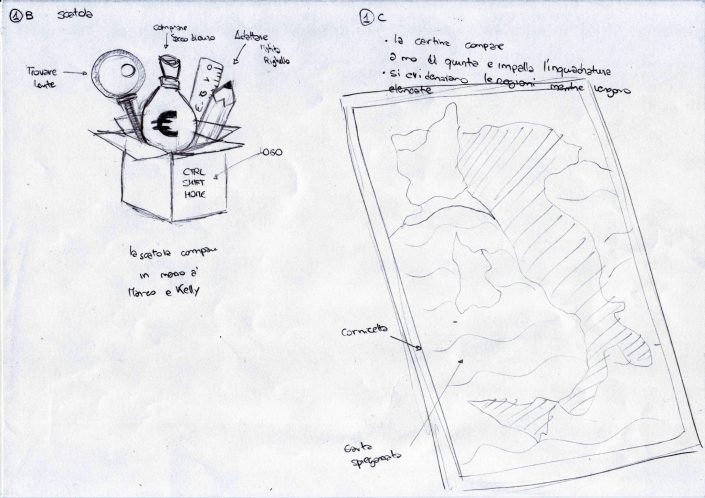 1 B scatola
comprare
sacco di euro
Adattare
matita
Righello
Trovare
lente
€
LOGO
CTRL
SHIFT
HOME
la scatola compare
in mano a
Marco e Kelly
1 C
• la cartina compare
a mo di quinta e impalla l'inquadratura
• si evidenziano le regioni mentre vengono
elencate
Cornicetta
Carta
spiegazzata